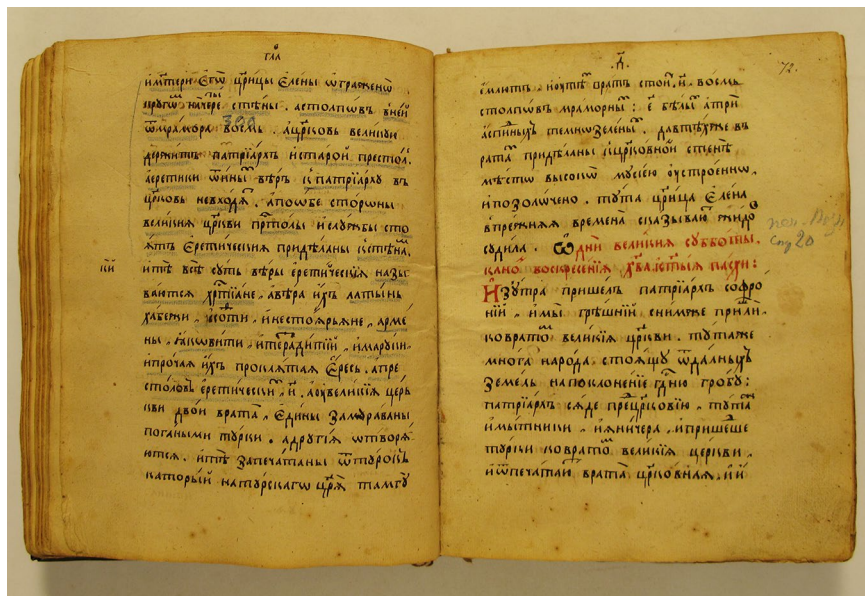 имⷯтери Егѡ црⷭ҇ицы Елены ѡтраженѡ
другѡⷨ начеⷮыре стѣны . астолпѡвъ вней
ѿмрамора восмь . ацр҃ковь великꙋи
держитъ патрїархъ истарой престоⷧ.
аеретики ѿины вѣръ кпатрїархꙋ въ
цр҃ковь невходⷮѧ . апоѡбе стороны
великиѧ цр҃кви прⷭ҇толы ислꙋжбы сто
ѧтъ Еретическиѧ придѣланы кстѣнаⷨ,
итѣ всѣ сꙋть вѣры еретическиѧ назы
ваютсѧ хрⷭ҇тїане . авѣра ихъ латынь
хабежи . кофти . инесторьѧне . арме
ны . ꙗковити . имарꙋни .
ипрочаѧ ихъ проклѧтаѧ Ересь . апре
столовъ еретическиⷯ . и҃ . аꙋвеликиѧ церь
кви двои врата . Едины замꙋраваны
погаными тꙋрки . адрꙋгїѧ ѡтворѧ
ютсѧ . итѣ запечатаны ѿтꙋрокъ
каторый натꙋрскагѡ цр҃ѧ тамгꙋ
72.
стой . и҃ . восмь
столпѡвъ мраморныⷯ : е҃ бѣлыⷯ атри
аспиныхъ темнозеленыⷯ . давтѣхже въ
ратаⷯ придѣланы кцр҃ковной стенѣ
мѣсто высоко мꙋсїею ꙋстроенно .
ипозолочено . тꙋта цр҃ица Елена
впрежнѧѧ времена сказываюⷮ жидоⷡ
сꙋдила . Ѡ дни великиѧ сꙋбботны .
канѡⷩ воскресенїѧ хв҃а пасхи :
Изꙋтра пришелъ патрїархъ софро
нїй . имы грѣшнїй снимже прїидⷪ҇
ковратоⷨ великїѧ цр҃кви . тꙋтаже
многа народа стоѧщꙋ ѿдалныхъ
земель напоклоненїе гд҇ню гробꙋ :
патрїархъ сѧде преⷣцр҃ковїю . тꙋтаⷤ
имытники . иѧничера . ипришеⷣше
тꙋрки ковратоⷨ великїѧ церкви .
иѿпечатаⷲ врата цр҃ковнаѧ . ии